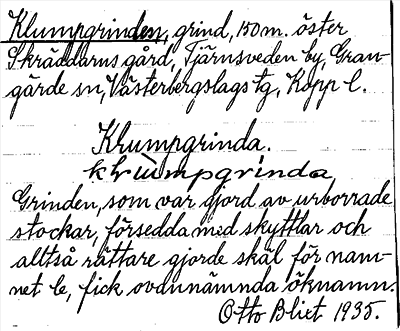 Klumpgrinden, grind, 150 m. öster
Skräddarns gård, Tjärnsveden by, Gran-
gärde sn, Västerbergslags tg, Kopp l.
Klumpgrinda.
klùmpgrinda
Grinden, som var gjord av urborrade
stockar, försedda med skyttlar och
alltså rättare gjorde skäl för nam-
net le, fick ovannämnda öknamn.
Otto Blixt 1935.